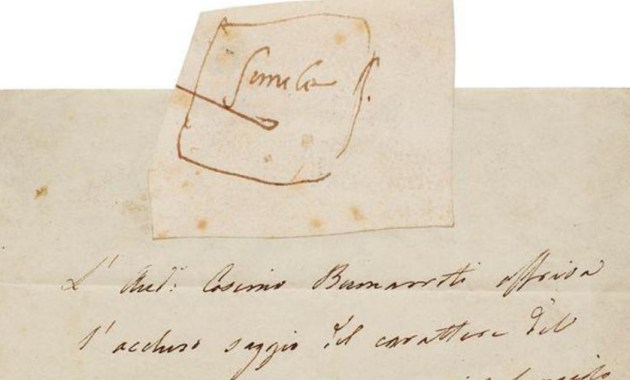 simile
L' Aud: Cosimo Buonarroti offriva
l' accluso saggio del carattere del